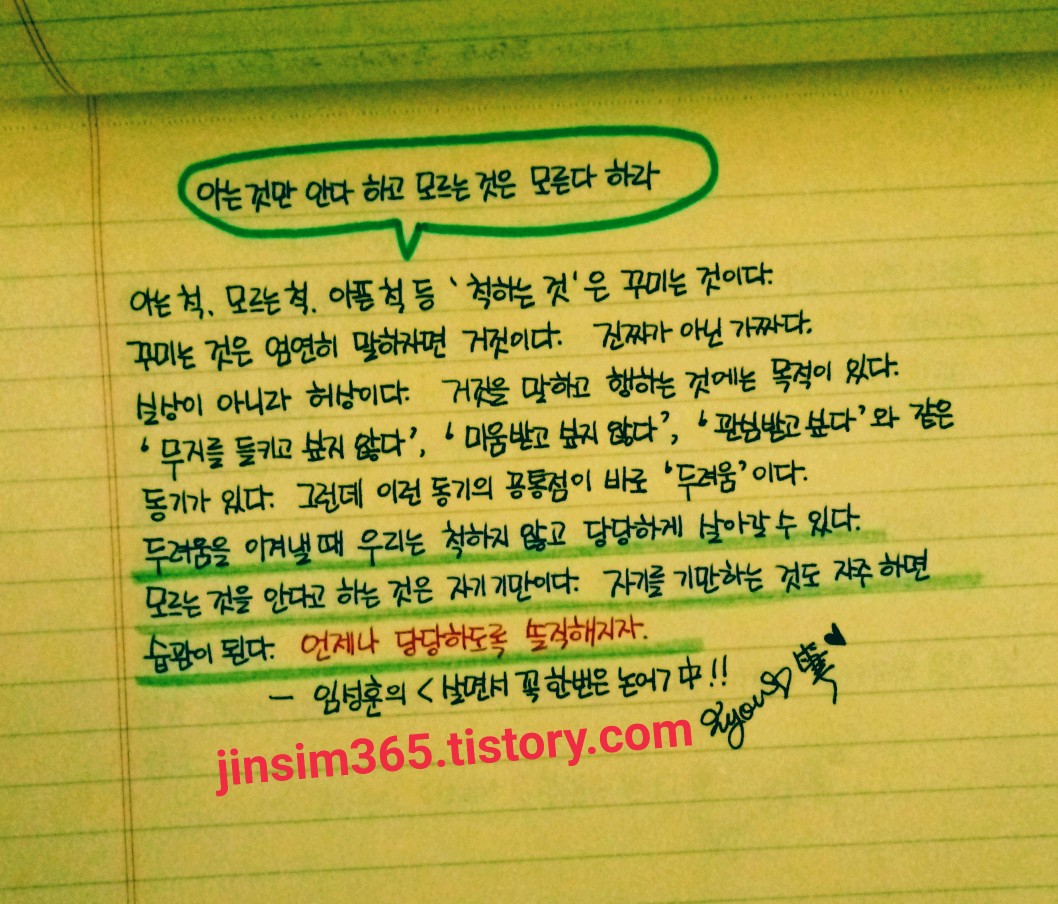 아는 것만 안다 하고 모르는 것은 모른다 하라
아는 척, 모르는 척, 아픈 척 등 '척하는 것'은 꾸미는 것이다.
꾸미는 것은 엄연히 말하자면 거짓이다. 진짜가 아닌 가짜다.
실상이 아니라 허상이다. 거짓을 말하고 행하는 것에는 목적이 있다.
'무지를 들키고 싶지 않다', '미움받고 싶지 않다', '관심받고 싶다'와 같은
동기가 있다. 그런데 이런 동기의 공통점이 바로 '두려움'이다.
두려움을 이겨낼 때 우리는 척하지 않고 당당하게 살아갈 수 있다.
모르는 것을 안다고 하는 것은 자기기만이다. 자기를 기만하는 것도 자주 하면
습관이 된다. 언제나 당당하도록 솔직해지자.
- 임성훈의 <살면서 꼭 한번은 논어> 中!!
jinsim365.tistory.com